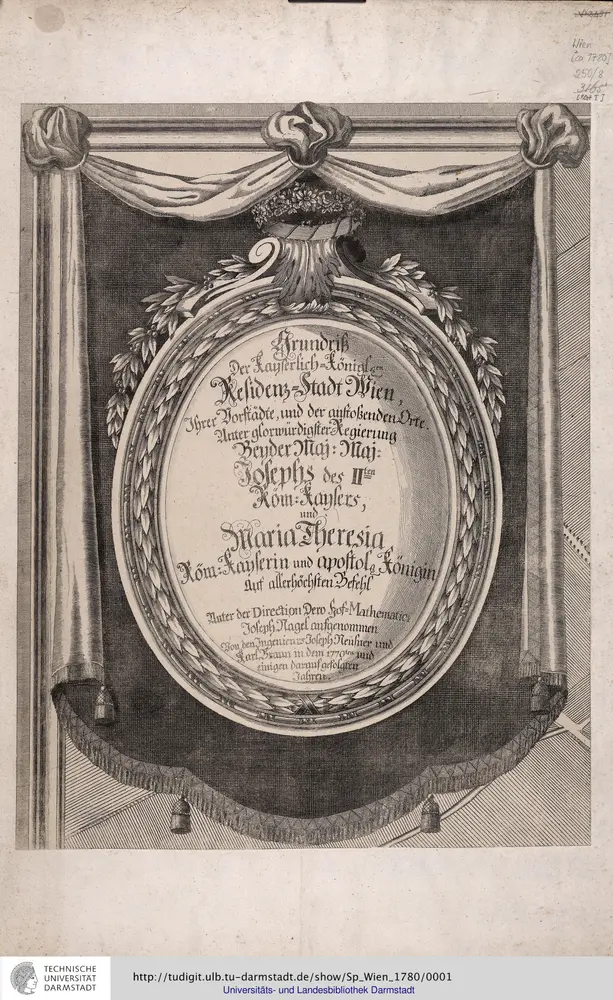 Wien
[ca 1780]
250/8
3165
[Bl. 1]
Grundriß
Der Kayserlich=Königl.en
Residenz=Stadt Wien,
Ihrer Vorstädte, und der anstoßenden Orte.
Unter glorwürdigster Regierung
Beyder Maj: Maj:
Josephs des IIten
Röm:Kaysers,
und
Maria Theresia
Röm:Kayserin und apostol. Königin
Auf allerhöchsten Befehl
Unter der Direction Dero Hof=Mathematici
Joseph Nagel aufgenommen
Von den Ingenieurs Joseph Neußner und
Karl Braun in dem 1770ten und
einigen darauf gefolgten
Jahren.
TECHNISCHE
UNIVERSITÄT
DARMSTADT
http://tudigit.ulb.tu-darmstadt.de/show/Sp_Wien_1780/0001
Universitäts- und Landesbibliothek Darmstadt